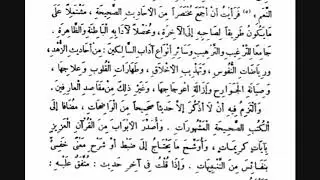 النِّعَمِ ، (٥) فَرَأَيْتُ أَنْ أَجْمَعَ مُخْتَصَراً مِنَ الأَحَادِيثِ الصَّحِيحَةِ ، مُشْتَمِلاً عَلَى
مَا يَكُونُ طَرِيقاً لِصَاحِبِهِ إِلَى الآخِرَةِ ، وَمُحَصِّلاً لآدَابِهِ الْبَاطِنَةِ وَالظَّاهِرَةِ ،
جَامِعاً لِلتَّرْغِيبِ وَالتَّرْهِيبِ وَسَائِرِ أَنْوَاعِ آدَابِ السَّالِكِينَ : مِنْ أَحَادِيثِ الزُّهْدِ ،
وَرِيَاضَاتِ النُّفُوسِ ، وَتَهْذِيبِ الأَخْلاقِ ، وَطَهَارَاتِ الْقُلُوبِ وَعِلاجِهَا ،
وَصِيَانَةِ الْجَوَارِحِ وَإِزَالَةِ اعْوِجَاجِهَا ، وَغَيْرِ ذٰلِكَ مِنْ مَقَاصِدِ الْعَارِفِينَ .
وَأَلْتَزِمُ فِيهِ أَنْ لا أَذْكُرَ إِلاَّ حَدِيثاً صَحِيحاً مِنَ الْوَاضِحَاتِ ، مُضَافاً إِلَى
الْكُتُبِ الصَّحِيحَةِ الْمَشْهُورَاتِ ، وَأُصَدِّرَ الأَبْوَابَ مِنَ الْقُرْآنِ الْعَزِيزِ
بِآيَاتٍ كَرِيمَاتٍ ، وَأُوَشِّحَ مَا يَحْتَاجُ إِلَى ضَبْطٍ أَوْ شَرْحِ مَعْنًى خَفِيٍّ
بِنَفَائِسَ مِنَ التَّنْبِيهَاتِ . وَإِذَا قُلْتُ فِي آخِرِ حَدِيثٍ : مُتَّفَقٌ عَلَيْهِ ؛